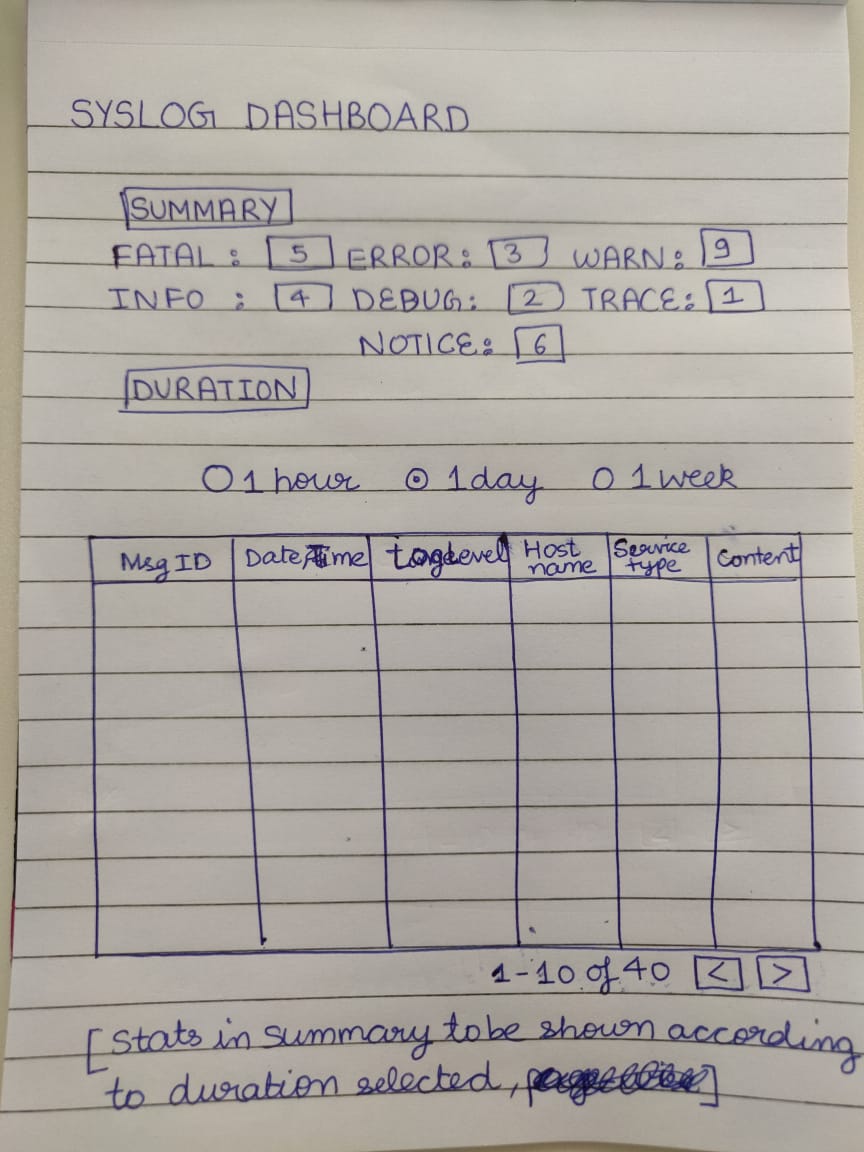 SYSLOG DASHBOARD
SUMMARY
FATAL: 5 ERROR: 3 WARN: 9
INFO : 4 DEBUG: 2 TRACE: 1
NOTICE: 6
DURATION
1 hour 1 day 1 week
Msg ID Date,Time LogLevel Host name Service type Content
1-10 of 40 < >
[Stats in summary to be shown according
to duration selected, ]